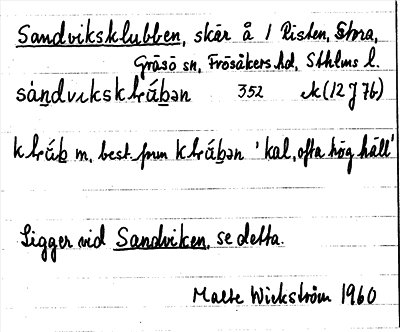 Sandviksklubben, skär å 1 Risten, Stora,
Gräsö sn, Frösåkers hd, Sthlms l.
352 ek (12 J 76)
m. best. form 'kal, ofta hög häll'
Ligger vid Sandviken, se detta.
Malte Wickström 1960